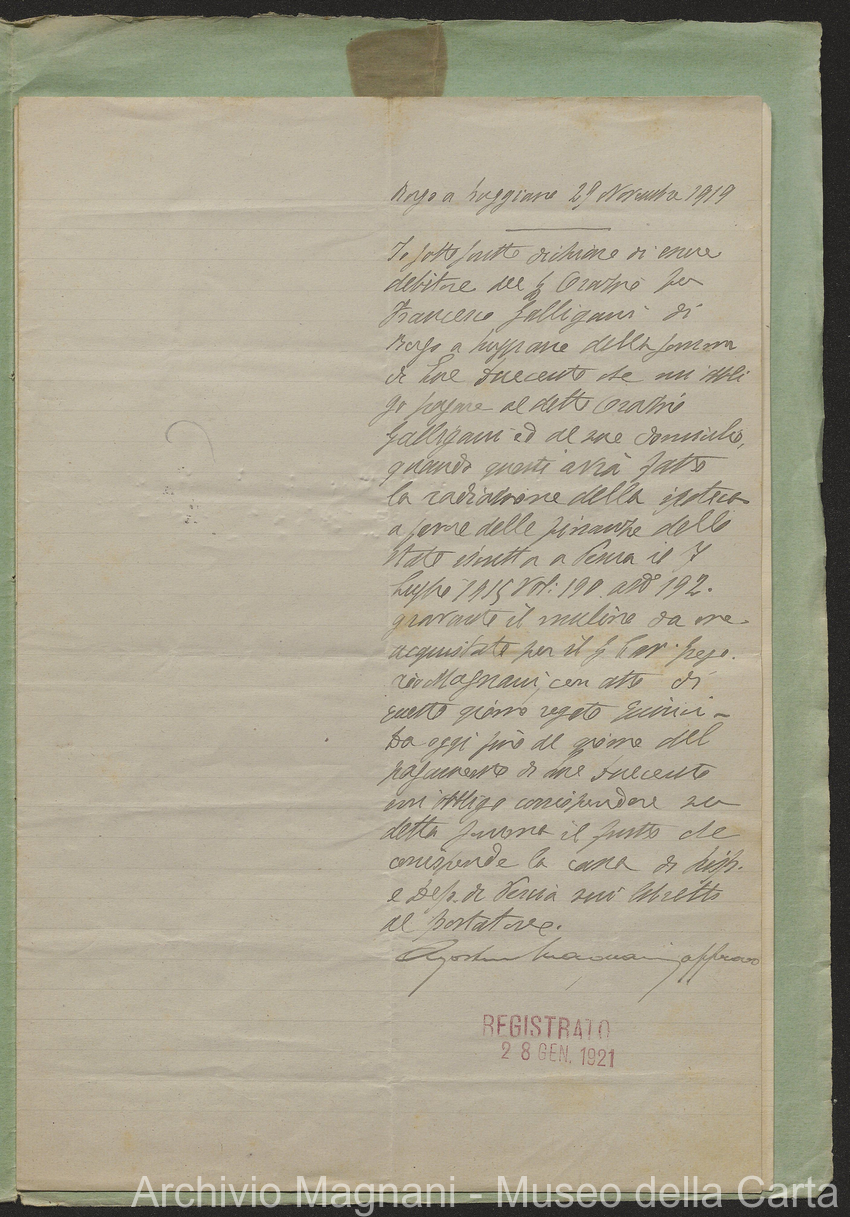 Borgo a Buggiano 29 Novembre 1919
Io sottoscritto dichiaro di essere
debitore del Sr Orazio fu
Francesco Galligani di
Borgo a Buggiano della somma
di Lire duecento che mi obbli
go pagare al detto Orazio
Galligani ed al suo domicilio,
quando questi avrà fatto
la radiazione della ipoteca
a favore delle finanze dello
Stato iscritta a Pescia il 7
Luglio 1915 Vol: 190 artº 192.
gravante il mulino da me
acquistato per il S. Cav. Grego
rio Magnani, con atto di
questo giorno rogato
Da oggi fino al giorno del
pagamento di lire duecento
mi obbligo corrispondere su
detta somma il frutto che
corrisponde la cassa di Risp.
e Dep. di Pescia sui libretti
al portatore.
Agostino Magnani approvo
REGISTRATO
28 GEN. 1921
Archivio Magnani - Museo della Carta